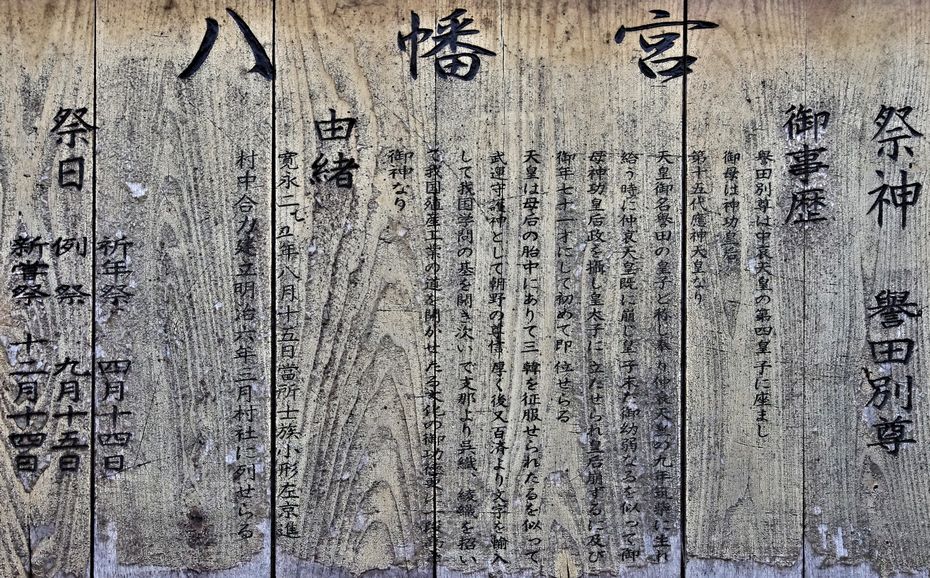 八幡宮
祭神 譽田別尊
御事歴
譽田別尊は中哀天皇の第四皇子に座まし
御母は神功皇后
第十五代應神天皇なり
天皇御名譽田の皇子と称し奉り仲哀天皇の九年筑紫に生れ
給う時に仲哀天皇既に崩し皇子未だ御幼弱なるを似って御
母神功皇后政を攝し皇太子に立たせられ皇后崩ずるに及び
御年七十一才にして初めて即位せらる
天皇は母后の胎中にありて三韓を征服せられたるを似って
武運守護神として朝野の尊崇厚く後又百済より文字を輸入
して我国学問の基を開き次いで支那より呉織 綾織を招い
て我国殖産工業の道を開かせたる文化の御功
御神なり
由緒
寛永二乙丑年八月十五日當所士族小形左京進
村中合力建立明治六年三月村社に列せらる
祭日
祈年祭 四月十四日
例祭 九月十五日
新嘗祭 十二月十四日